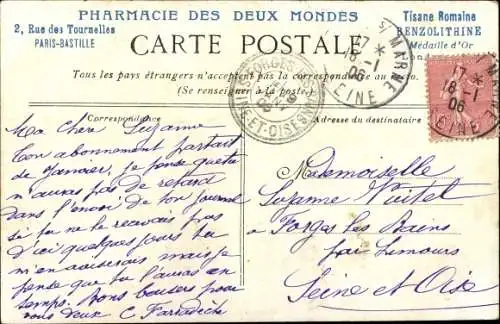 PHARMACIE DES DEUX MONDES
2, Rue des Tournelles
PARIS-BASTILLE
Tisane Romaine
BENZOLITHINE
Médaille d'Or
CARTE POSTALE
Tous les pays étrangers n'acceptent pas la correspondance au recto.
(Se renseigner à la poste.)
Correspondance
Adresse du destinataire
ST MARNE
18-1
06
SEINE
FORGES
SEINE-ET-OISE
18-1
06
SEINE
Ma chère Suzanne
Ton abonnement partant
de Janvier, je pense que tu
n'auras pas de retard
dans l'envoi de ton journal
si tu ne le recevais pas
d'ici quelques jours tu
m'en aviserais mais je
pense que tu l'auras en
temps. Bons baisers pour
vous deux C.
Mademoiselle
Suzanne
à Forges les Bains
par Limours
Seine et Oise